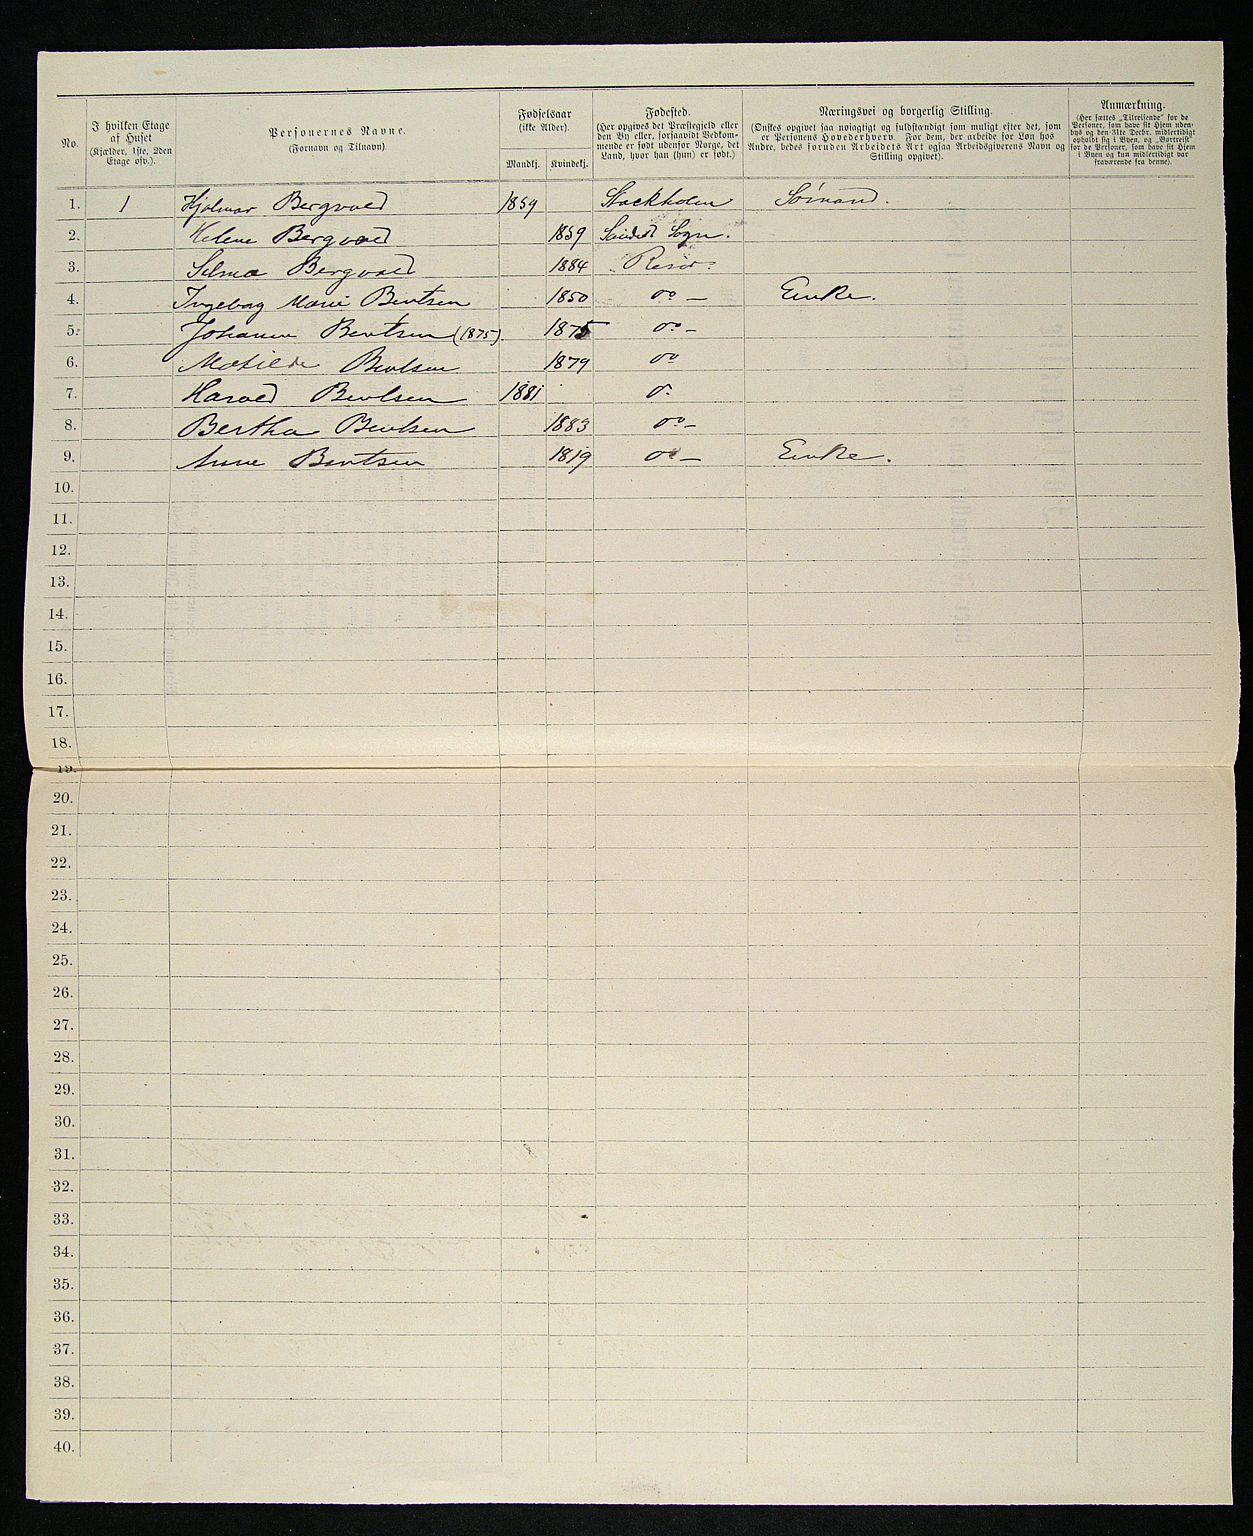 No. | I hvilken Etage af Huset (Kjælder, 1ste, 2den Etage osv.). | Personernes Navne. (Fornavn og Tilnavn). | Fødselsaar (ikke Alder). Mandkj. | Kvindekj. | Fødested. (Her opgives det Præstegjeld eller den By eller, forsaavidt Vedkommende er født udenfor Norge, det Land, hvor han (hun) er født.) | Næringsvei og borgerlig Stilling. (Ønskes opgivet saa nøiagtigt og fuldstændigt som muligt efter det, som er Personens Hovederhverv. For dem, der arbeide for Løn hos Andre, bedes foruden Arbeidets Art ogsaa Arbeidsgiverens Navn og Stilling opgivet). | Anmærkning. (Her sættes „Tilreisende" for de Personer, som have sit Hjem udenbys og den 31te Decbr. midlertidigt opholdt sig i Byen, og „Bortreist" for de Personer, som have sit Hjem i Byen og kun midlertidigt var fraværende fra denne).
1. 1 Hjalmar Bergvald 1859 Stockholm Sømand.
2. Helene Bergvald 1859 Søndeled Sogn.
3. Selma Bergvald 1884 Risør.
4. Ingeborg Marie Bentsen 1850 do — Enke.
5. Johanne Bentsen (1875). 1875 do —
6. Mathilde Bentsen 1879 do
7. Harald Bentsen 1881 do
8. Bertha Bentsen 1883 do —
9. Anne Bentsen 1819 do — Enke.
10.
11.
12.
13.
14.
15.
16.
17.
18.
19.
20.
21.
22.
23.
24.
25.
26.
27.
28.
29.
30.
31.
32.
33.
34.
35.
36.
37.
38.
39.
40.